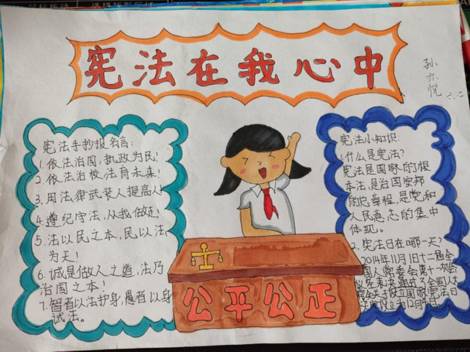 宪法在我心中
宪法手抄报名言:
1.依法治国,执政为民!
2.依法治校,法育未来!
3.用法律武装人提高人
4.遵纪守法,从我做起!
5.法以民之本,民以法
为天!
6.诚是做人之道,法乃
治国之本!
7.智者以法护身,愚者以身
试法。
公平公正
宪法小知识
1.什么是宪法?
宪法是国家的根
本法,是治国安邦
的总章程,是党和
人民意志的集中
体现。
2.宪法日在哪一天?
2014年11月1日十二届全